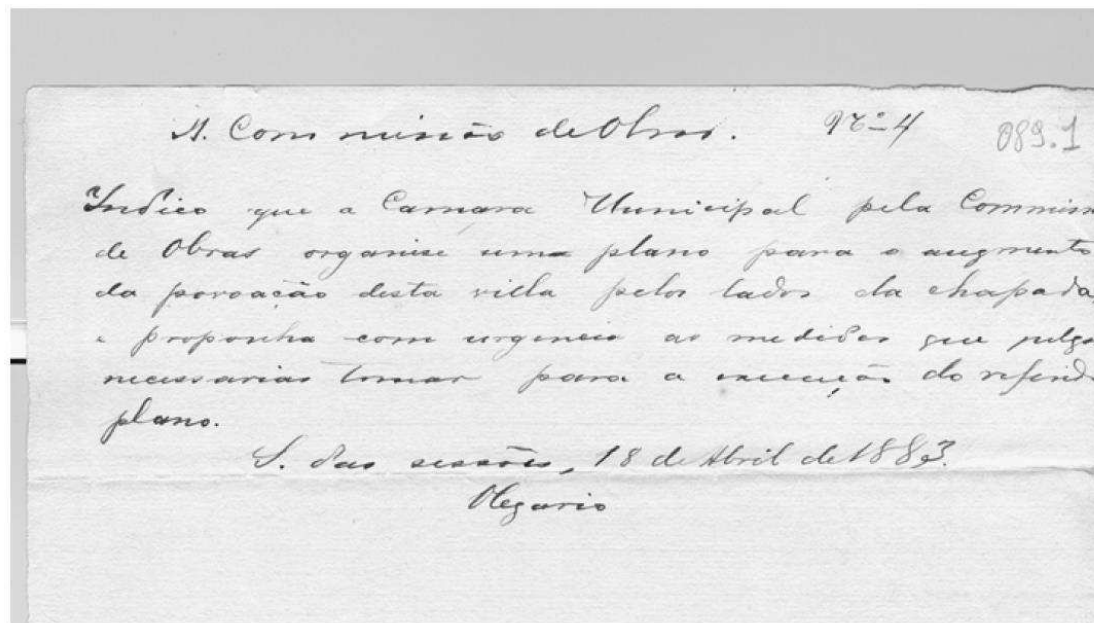 A. Commissão de Obras. Nº 4 089.1
Indico que a Camara Municipal pela Commiss
de Obras organise um plano para o augmento
da povoação desta villa pelos lados da chapada,
e proponha com urgencia as medidas que julga
necessarias tomar para a execução do referid
plano.
S. das sessões, 18 de Abril de 1883.
Olegario